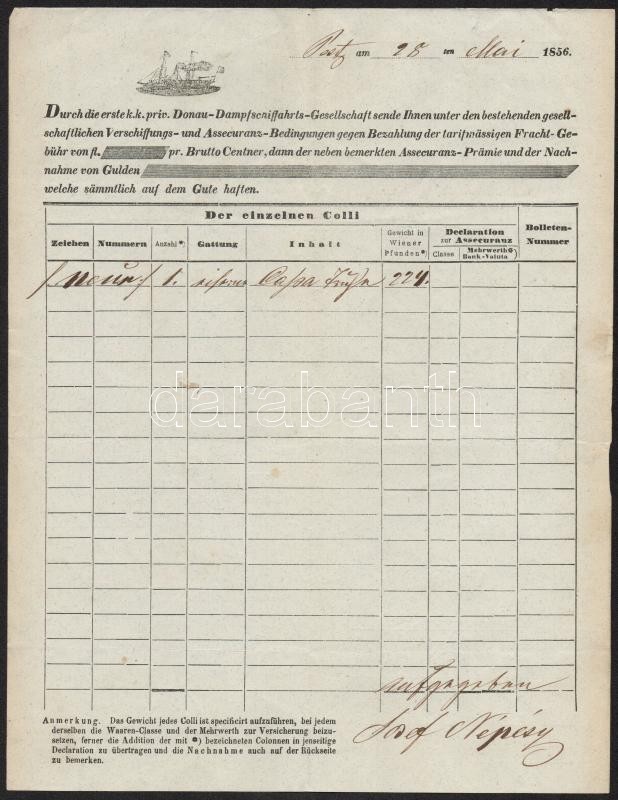 Pest am 28 ten Mai 1856.
Durch die erste k.k. priv. Donau-Dampfschiffahrts-Gesellschaft sende Ihnen unter den bestehenden gesell-
schaftlichen Verschiffungs- und Assecuranz-Bedingungen gegen Bezahlung der tarifmässigen Fracht-Ge-
bühr von fl. pr. Brutto Centner, dann der neben bemerkten Assecuranz-Prämie und der Nach-
nahme von Gulden
welche sämmtlich auf dem Gute haften.
Der einzelnen Colli
Zeichen Nummern Anzahl*) Gattung Inhalt Gewicht in Wiener Pfunden*) Declaration zur Assecuranz Classe Mehrwerth Bank-Valuta *) Bolleten-Nummer
1. eiserne Cassa 224.
aufgegeben
darabanth
Anmerkung. Das Gewicht jedes Colli ist specificirt aufzuführen, bei jedem
derselben die Waaren-Classe und der Mehrwerth zur Versicherung beizu-
setzen, ferner die Addition der mit *) bezeichneten Colonnen in jenseitige
Declaration zu übertragen und die Nachnahme auch auf der Rückseite
zu bemerken.